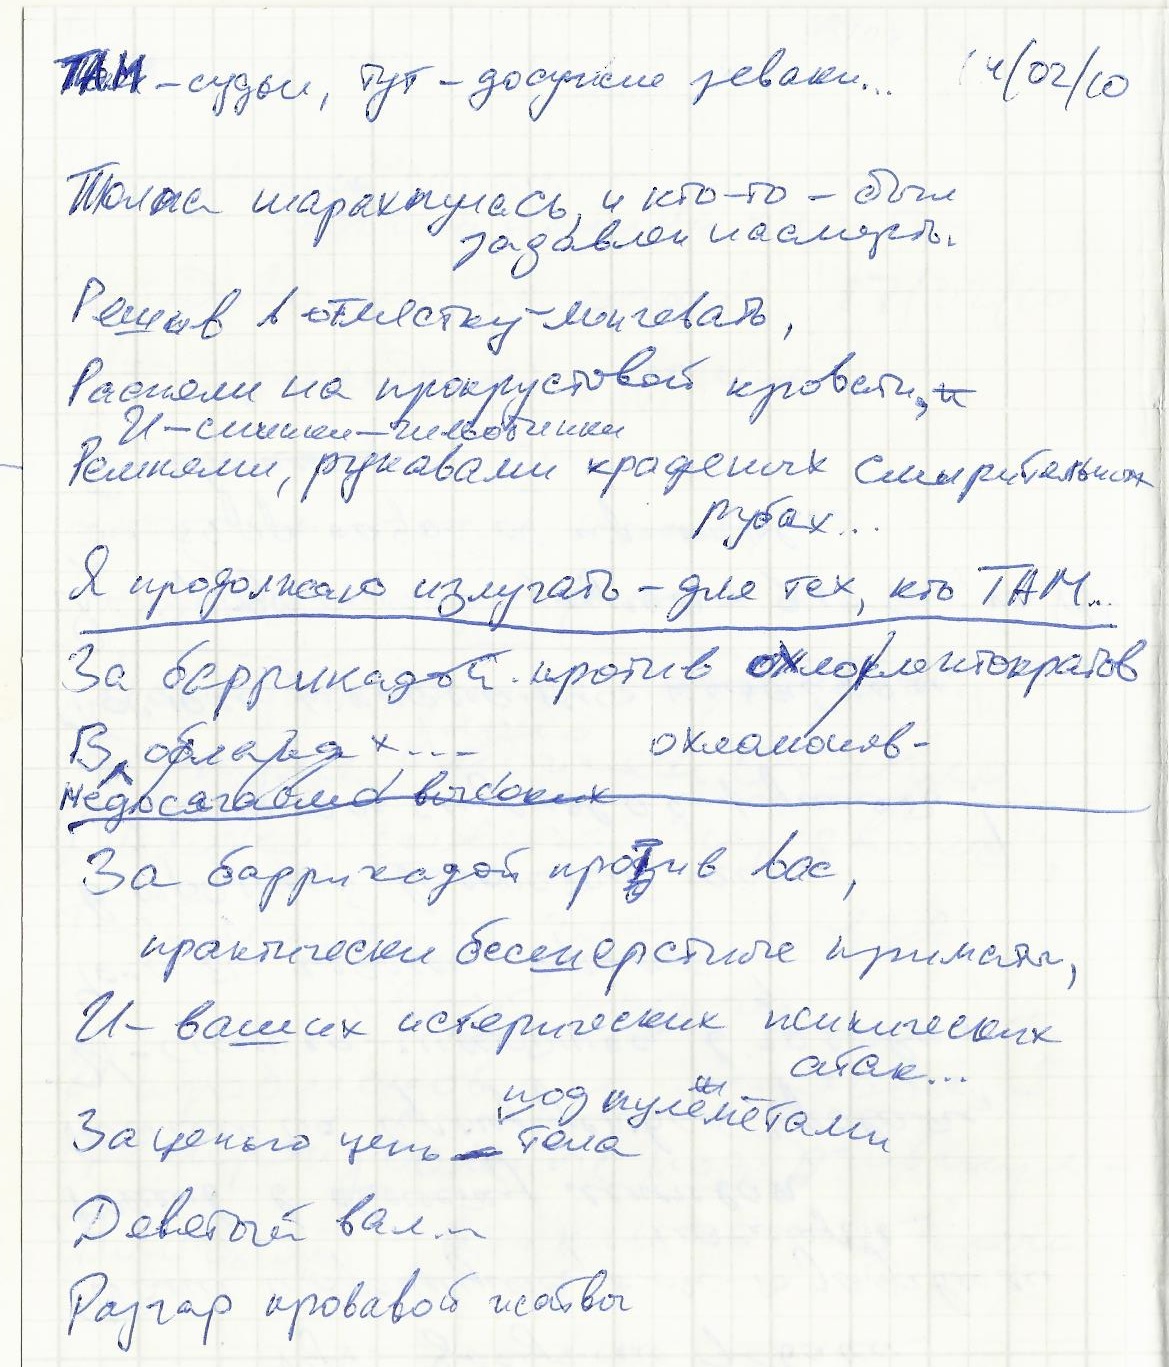 ТАМ - судьи, тут - досужие зеваки... 14/02/10
Толпа шарахнулась, и кто-то - был
задавлен насмерть.
Решив в отместку - линчевать,
Распяли на прокрустовой кровати, и
И - спинки - гильотинки
Ремнями, рукавами краденых смирительных
рубах...
Я продолжаю излучать - для тех, кто ТАМ...
За баррикадой против охлоклептократов
В облаках... охламонов-
недосягаемо высоких
За баррикадой против вас,
практически бесшёрстные приматы,
И - ваших истерических психических
атак...
под пулемётами
За цепью цепь - тела
Девятый вал...
Разгар кровавой жатвы